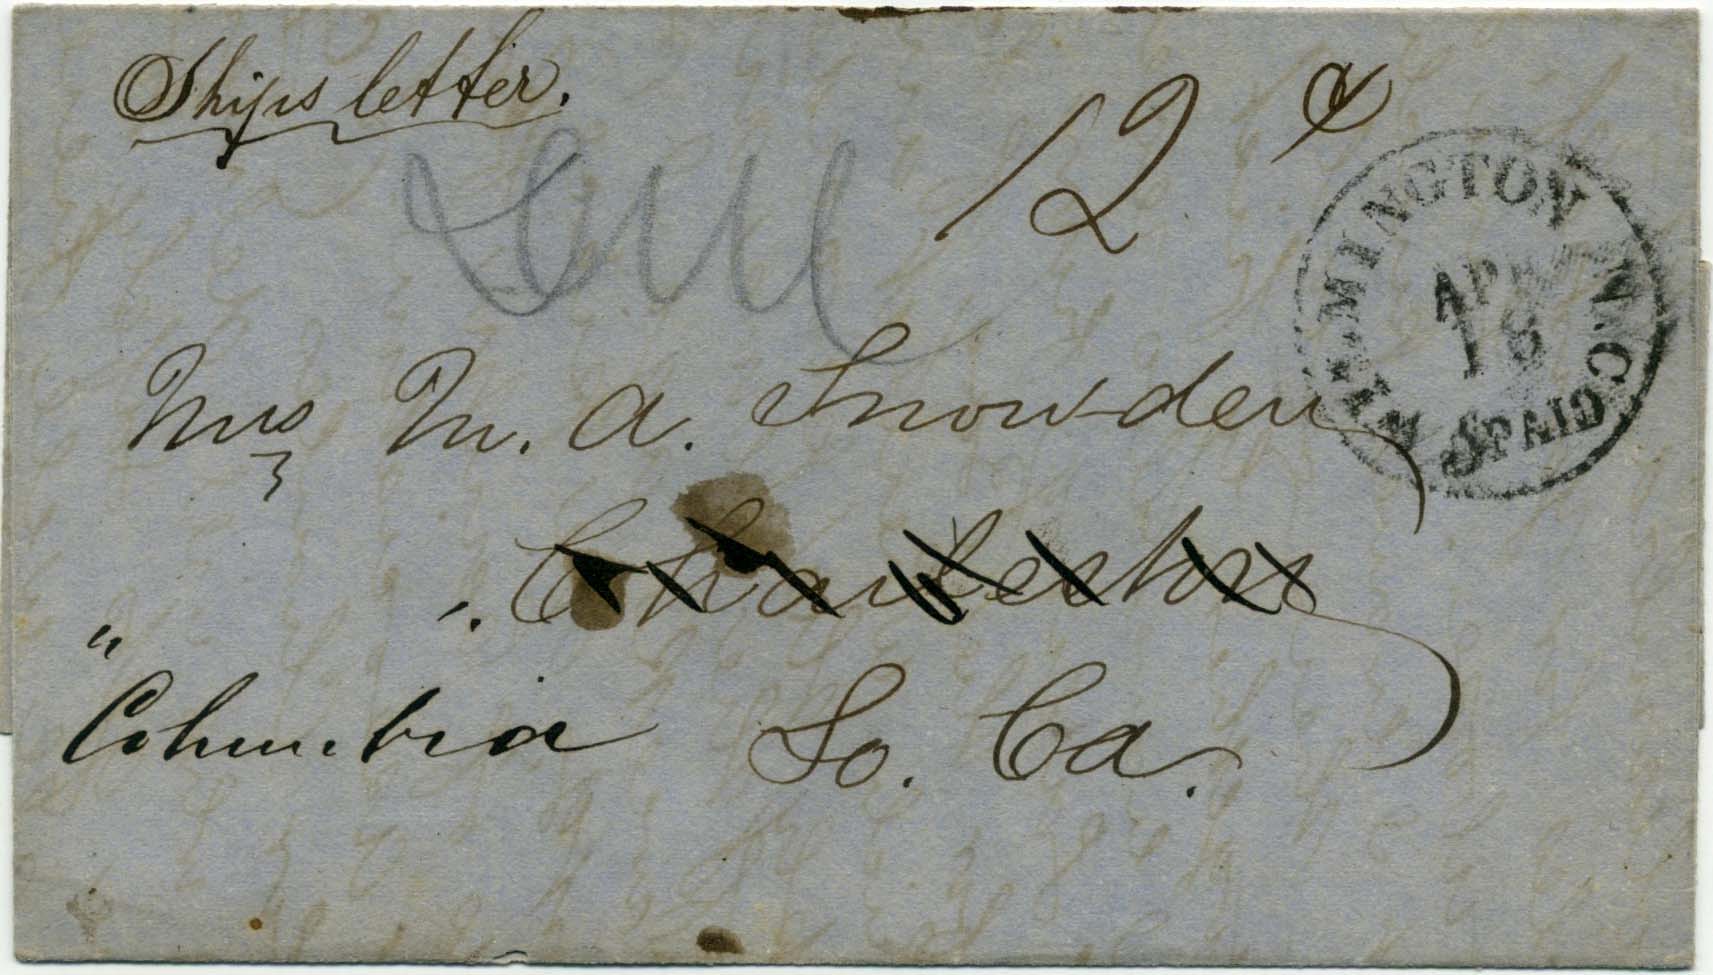 Ships letter.
12 ¢
WILMINGTON N.C.
APR
18
5 PAID
Mrs M. A. Snowden
Charleston
Columbia So. Ca.